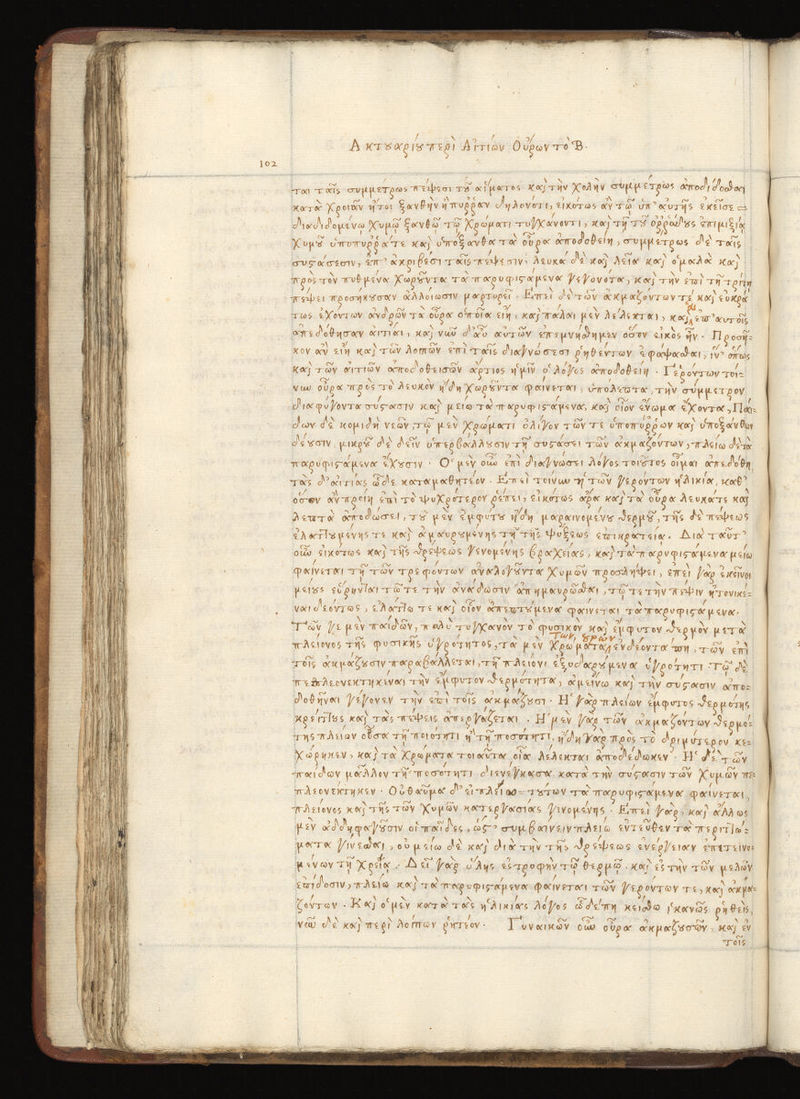 Ἀκτουαρίου περὶ Αἰτιῶν Οὔρων τὸ Β.
102
ται ταῖς συμμέτρως πέψεσι τοῦ αἵματος καὶ τὴν χολὴν συμμέτρως ἀποδίδοσθαι
κατὰ χροιὰν ἤτοι ξανθὴν ἢ πυρρὰν δηλονότι, εἰκότως ἂν τῷ ὑπ' αὐτῆς ἐκεῖσε
διαδιδομένῳ χυμῷ ξανθῷ τῷ χρώματι τυγχάνοντι, καὶ τῇ τοῦ ὀρρώδους ἐπιμιξίᾳ
χυμοῦ ὑπόπυρρά τε καὶ ὑπόξανθα τὰ οὖρα ἀποδοθείη, συμμέτρως δὲ ταῖς
συστάσεσιν, ἐπ' ἀκριβέσι ταῖς πέψεσιν, λευκὰ δὲ καὶ λεῖα καὶ ὁμαλὰ καὶ
πρὸς τὸν πυθμένα χωροῦντα τὰ παρυφιστάμενα γεγονότα, καὶ τὴν ἐπὶ τῇ τρίτῃ
πέψει προσήκουσαν ἀλλοίωσιν μαρτυρεῖ. Ἐπεὶ δὲ τῶν ἀκμαζόντων τε καὶ εὐκρά
τως ἐχόντων ἀνδρῶν τὰ οὖρα ὁποῖα εἴη, καὶ πάλαι μὲν λέλεκται, καὶ αἱ ἐπ' αὐτοῖς
ἀπεδόθησαν αἰτίαι, καὶ νῦν δ' αὖ αὐτῶν ἐπεμνήσθημεν ὅσον εἰκὸς ἦν. Προσῆ=
κον ἂν εἴη καὶ τῶν λοιπῶν ἐπὶ ταῖς διαγνώσεσι ῥηθέντων ἐφάψασθαι, ἵν' ὅπως
καὶ τῶν αἰτιῶν ἀποδοθεισῶν ἄρτιος ἡμῖν ὁ λόγος ἀποδοθείη. Γερόντων τοί=
νυν οὖρα πρὸς τὸ λευκὸν ἤδη χωροῦντα φαίνεται, ὑπόλεπτα, τὴν σύμμετρον
διαφυγόντα σύστασιν καὶ μείω τὰ παρυφιστάμενα, καὶ οἷον ἔνωμα ἔχοντα, Παί=
δων δὲ κομιδῇ νεῶν, τῷ μὲν χρώματι ὀλίγον τῶν τε ὑποπύρρων καὶ ὑποξάνθων
δέουσιν, μικροῦ δὲ δεῖν ὑπερβάλλουσιν τῇ συστάσει τῶν ἀκμαζόντων, πλείω δὲ τὰ
παρυφιστάμενα ἔχουσιν. Ὁ μὲν οὖν ἐπὶ διαγνώσει λόγος τοιοῦτος οἶμαι ἀπεδόθη,
τὰς δ' αἰτίας ὧδε καταμαθητέον. Ἐπεὶ τοίνυν ἡ τῶν γερόντων ἡλικία, καθ'
ὅσον ἂν προίῃ ἐπὶ τὸ ψυχρότερον ῥέπει, εἰκότως ἄρα καὶ τὰ οὖρα λευκά τε καὶ
λεπτὰ ἀποδώσει, τοῦ μὲν ἐμφύτου ἤδη μαραινομένου θερμοῦ, τῆς δὲ πέψεως
ἐλαττουμένης τε καὶ ἀμαυρουμένης τῇ τῆς ψύξεως ἐπικρατείᾳ. Διὰ ταῦτ'
οὖν εἰκότως καὶ τῆς θρέψεως γενομένης βραχείας, καὶ τὰ παρυφιστάμενα μείω
φαίνεται τῇ τῶν τρεφόντων ἀναλογοῦντα χυμῶν προσλήψει, ἐπεὶ γὰρ ἐκεῖνοι
μείους εὕρηνται τῷ τε τὴν ἀνάδωσιν ἀπημαυρῶσθαι, τῷ τε τὴν πέψιν ἠτονικέ=
ναι δεόντως, ἐλάττω τε καὶ οἷον ἀπεπτούμενα φαίνεται τὰ παρυφιστάμενα.
Τῶν γε μὲν παίδων, πολὺ τυγχάνον τὸ φυσικὸν καὶ ἔμφυτον θερμὸν μετὰ
πλείονος τῆς φυσικῆς ὑγρότητος, τὰ μὲν χρώματα τῶν οὔρων ἐνδέοντά πη, τῶν ἐπὶ
τοῖς ἀκμάζουσιν παραβάλλεται, τῇ πλείονι ἐξυδαρούμενα ὑγρότητι. Τῷ δὲ
πεπλεονεκτηκέναι τὴν ἔμφυτον θερμότητα, ἀμείνω καὶ τὴν σύστασιν ἀπο=
δοθῆναι γέγονεν τὴν ἐπὶ τοῖς ἀκμάζουσι. Ἡ γὰρ πλείων ἔμφυτος θερμότης
κρείττους καὶ τὰς πέψεις ἀπεργάζεται. Ἡ μὲν γὰρ τῶν ἀκμαζόντων θερμό=
της πλείων οὖσα τῇ ποιότητι ἢ τῇ ποσότητι, ἤδη γὰρ πρὸς τὸ δριμύτερον κε=
χώρηκεν, καὶ τὰ χρώματα τοιαῦτα, οἷα λέλεκται ἀποδέδωκεν. Ἡ δὲ τῶν
παίδων μᾶλλον τῇ ποσότητι διενεγκοῦσα κατὰ τὴν σύστασιν τῶν χυμῶν πε
πλεονέκτηκεν. Οὐ θαῦμα δ' εἰ πλείω τούτων τὰ παρυφιστάμενα φαίνεται,
πλείονος καὶ τῆς τῶν χυμῶν κατεργασίας γινομένης. Ἐπεὶ γὰρ, καὶ ἄλλως
μὲν ἀδδηφαγοῦσιν οἱ παῖδες, ὥστε συμβαίνειν πλείω ἐντεῦθεν τὰ περιττώ=
ματα γίνεσθαι, οὐ μείω δὲ καὶ διὰ τὴν τῆς θρέψεως ἐνέργειαν ἐπετεινο=
μένων τῇ χρείᾳ. Δεῖ γὰρ ὕλης ἐς τροφὴν τῷ θερμῷ. καὶ ἐς τὴν τῶν μελῶν
ἐπίδοσιν, πλείω καὶ τὰ παρυφιστάμενα φαίνεται τῶν γερόντων τε, καὶ ἀκμα=
ζόντων. Καὶ ὁ μὲν κατὰ τὰς ἡλικίας λόγος ὧδέ πη κείσθω ἱκανῶς ῥηθεὶς,
νῦν δὲ καὶ περὶ λοιπῶν ῥητέον. Γυναικῶν οὖν οὖρα ἀκμαζουσῶν, καὶ ἐν
τοῖς